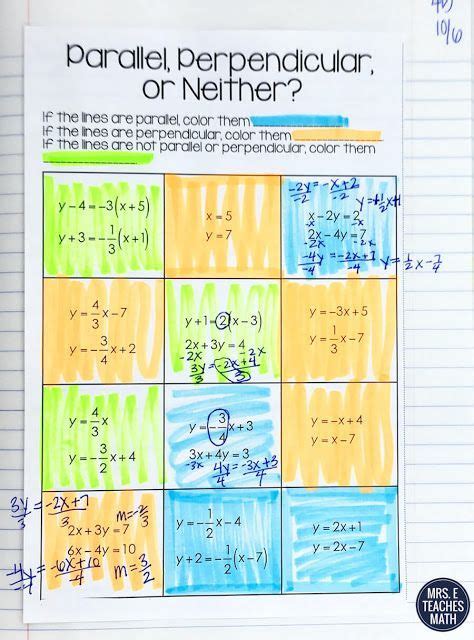 10/6
Parallel, Perpendicular,
or Neither?
If the lines are parallel, color them
If the lines are perpendicular, color them
If the lines are not parallel or perpendicular, color them
y - 4 = -3(x + 5)
y + 3 = -1/3(x + 1)
x = 5
y = 7
-2y = -x + 2
-2 -2
x - 2y = 2
-x -x
2x - 4y = 7
-2x -2x
-4y = -2x + 7
-4 -4
y = 1/2x - 7/4
y = 4/3x - 7
y = -3/4x + 2
y + 1 = 2(x - 3)
2x + 3y = 4
-2x -2x
3y = -2x + 4
3 3
y = -3x + 5
y = 1/3x - 7
y = 4/3x
y = -3/2x + 4
y = -3/4x + 3
3x + 4y = 3
-3x
4y = -3x + 3
4 4
y = -x + 4
y = x - 7
3y = -2x + 7
3 3
2x + 3y = 7
m = -2/3
6x - 4y = 10
-4y = -6x + 10
-4 -4
m = 3/2
y = -1/2x - 4
y + 2 = -1/2(x - 7)
y = 2x + 1
y = 2x - 7
MRS. E
TEACHES
MATH